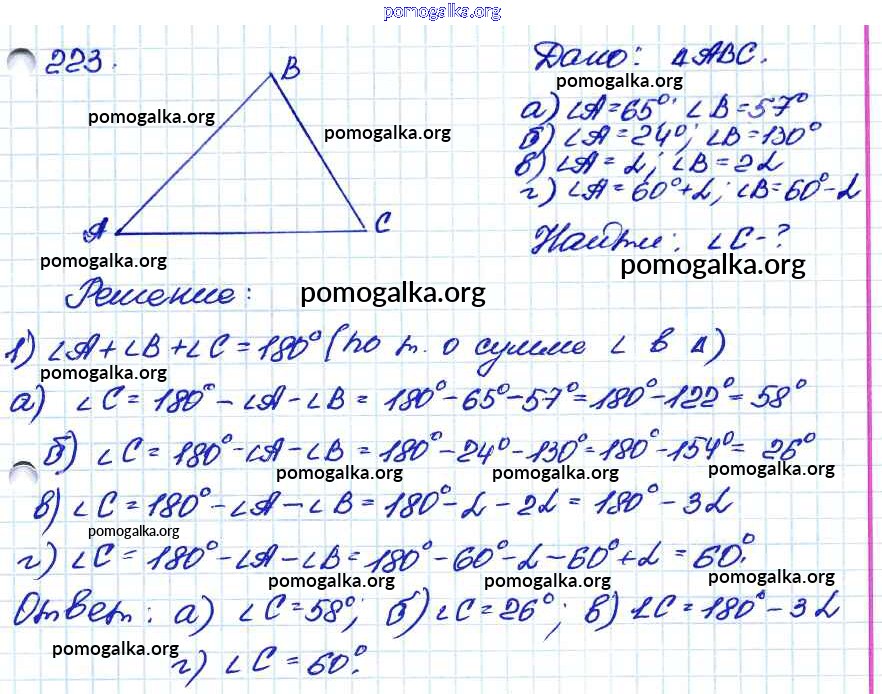 pomogalka.org
223.
B
Дано: ΔABC.
pomogalka.org
pomogalka.org
pomogalka.org
а) ∠A=65°; ∠B=57°
б) ∠A=24°; ∠B=130°
в) ∠A=α; ∠B=2α
г) ∠A=60°+α; ∠B=60°-α
A
C
Найти: ∠C-?
pomogalka.org
pomogalka.org
Решение:
pomogalka.org
1) ∠A+∠B+∠C=180° (по т. о сумме ∠ в Δ)
pomogalka.org
а) ∠C=180°-∠A-∠B=180°-65°-57°=180°-122°=58°
б) ∠C=180°-∠A-∠B=180°-24°-130°=180°-154°=26°
pomogalka.org pomogalka.org pomogalka.org
в) ∠C=180°-∠A-∠B=180°-α-2α=180°-3α
pomogalka.org
г) ∠C=180°-∠A-∠B=180°-60°-α-60°+α=60°.
pomogalka.org pomogalka.org pomogalka.org
Ответ: а) ∠C=58°; б) ∠C=26°; в) ∠C=180°-3α
pomogalka.org
г) ∠C=60°.